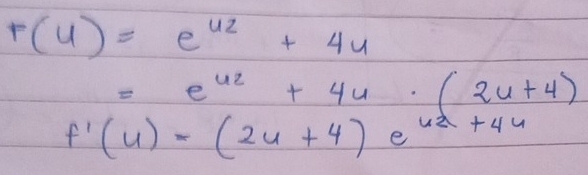 f(u) = e^u2 + 4u
= e^u2 + 4u · (2u+4)
f'(u) = (2u+4) e^u2 +4u